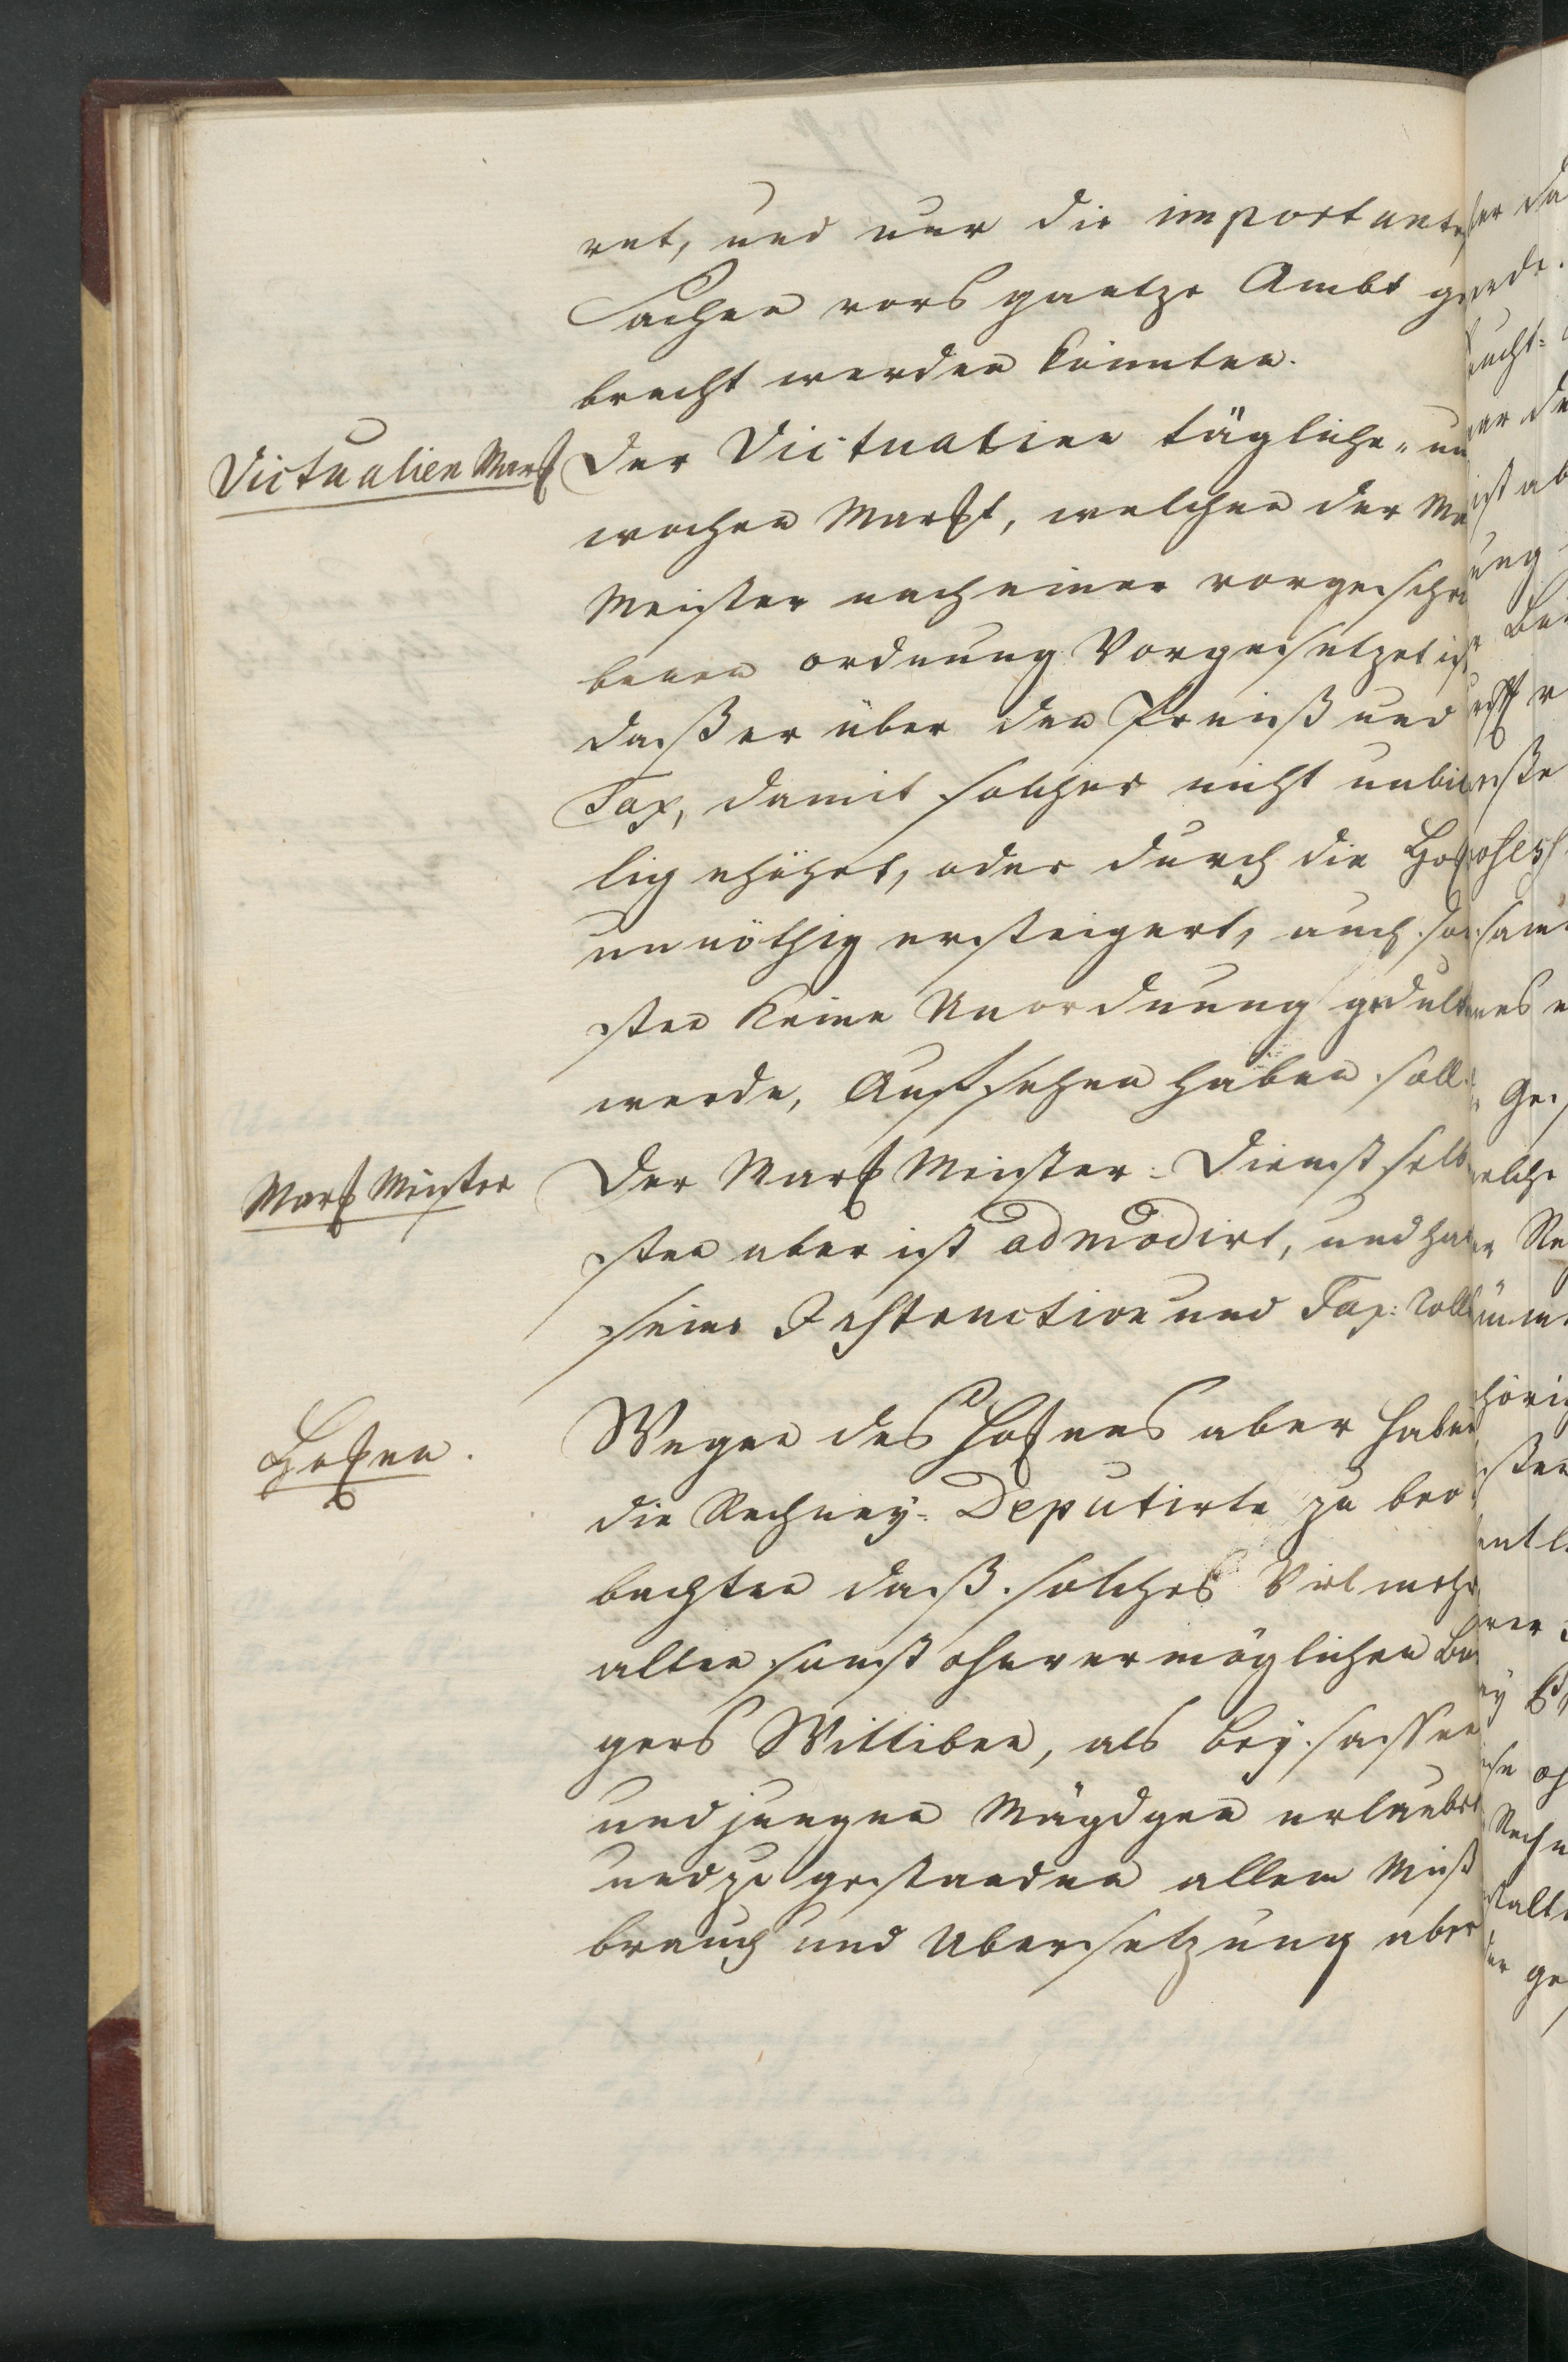 ret, und nur die importante
Sachen vors gantze Ambt ge
bracht werden könnten.
Victualien Marckt
Der Victualien tägliche- un
wochen Marckt, welchen der Ma
Meister nach einer vorgeschri
benen ordnung Vorgesetzet ist
daß er über den Preiß und
Tax, damit solcher nicht unbil
lig erhöhet, oder durch die Hock
unnöthig ersteigert, auch son
sten Keine Unordnung gedult
werde, Aufsehen haben soll.
Marck Meister
Der Marck Meister-Dienst selb
sten aber ist admodirt, und hat
seine Instruction und Tax-Roll
Hocken.
Wegen des Hockens aber haben
die Rechney-Deputirte zu beo
bachten daß solches Vielmehr
alten sonst ohnvermöglichen Bur
gers Wittiben, als Beysassen
und jungen Mägdgen erlaubet
und zu gestanden allem Miß
brauch und Ubersetzung aber